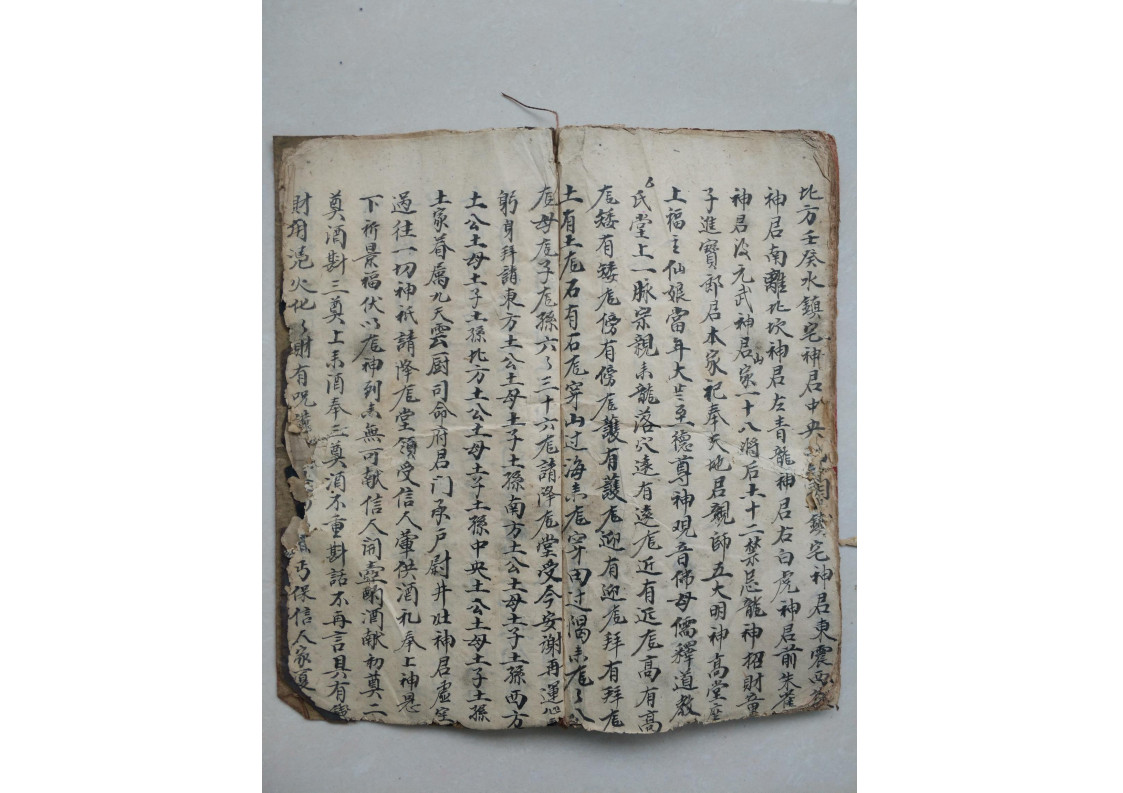 北方壬癸水鎮宅神君中央 鎮宅神君東震西
神君南離北坎神君左青龍神君右白虎神君前朱雀
神君後元武神君山家一十八將后土十二禁忌龍神招財
子進寶郎君本家祀奉天地君親師五大明神高堂座
上福主仙娘當年大 至德尊神观音佛母儒釋道教
氏堂上一脉宗親来龍落穴遠有遠 近有近 高有高
矮有矮 傍有傍 護有護 迎有迎 拜有拜
土有土 石有石 穿山过海来 穿田过 来 八
母 子 孫六六三十六 請降 堂受今安謝再運
躬身拜請東方土公土母土子土孫南方土公土母土子土孫西方
土公土母土子土孫北方土公土母土子土孫中央土公土母土子土孫
土家眷属九天雲厨司命府君门承户尉井灶神君虚空
過往一切神祇請降 堂領受信人葷供酒礼奉上神恩
下祈景福伏以 神列来無可献信人開壺酌酒献初奠二
奠酒斟三奠上来酒奉三奠酒不重斟話不再言具有
財用 火化了財有呪 丐保信人家